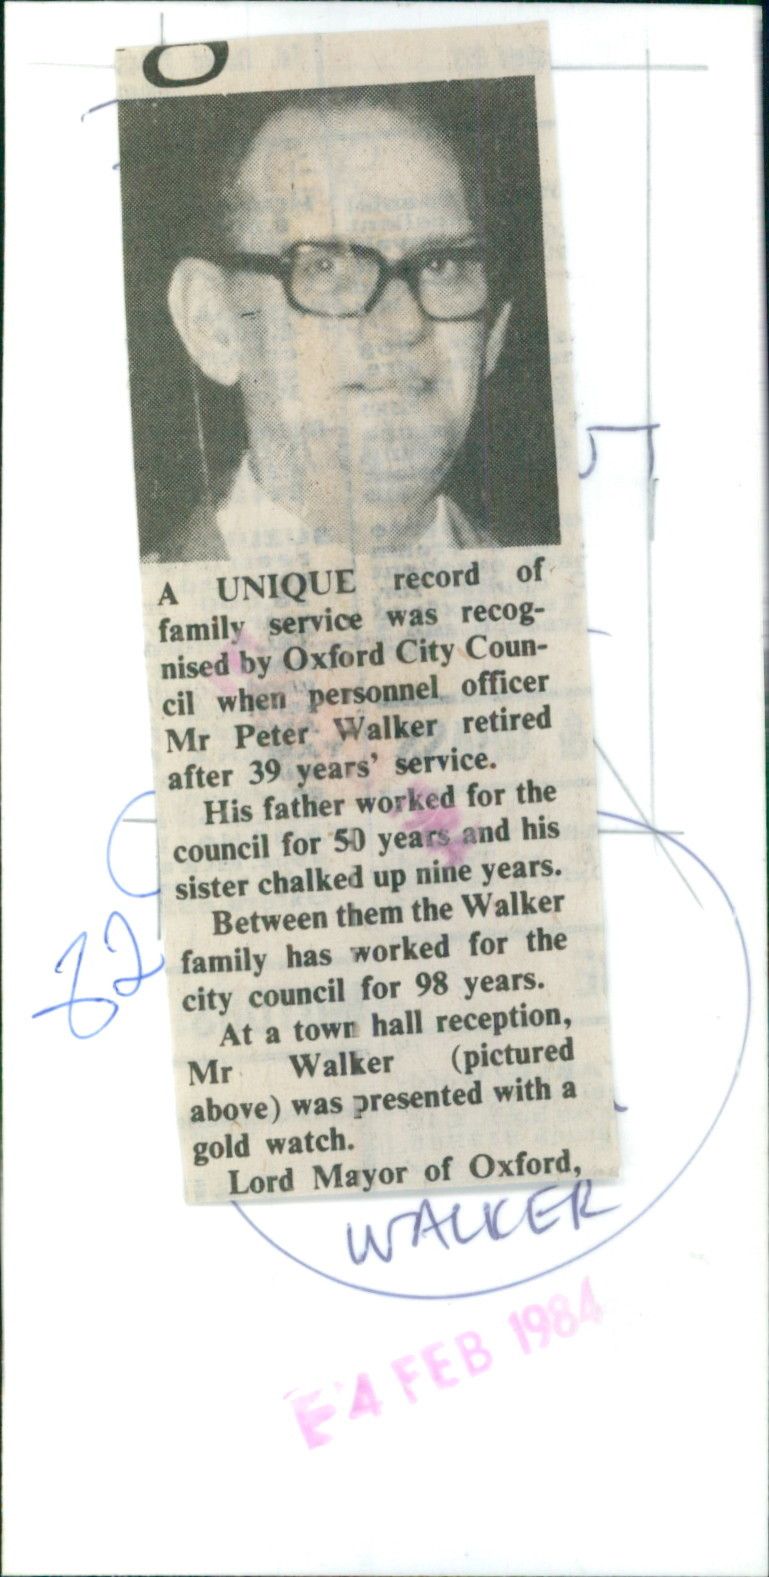 A UNIQUE record of
family service was recog-
nised by Oxford City Coun-
cil when personnel officer
Mr Peter Walker retired
after 39 years' service.
His father worked for the
council for 50 years and his
sister chalked up nine years.
Between them the Walker
family has worked for the
city council for 98 years.
At a town hall reception,
Mr Walker (pictured
above) was presented with a
gold watch.
Lord Mayor of Oxford,
WALKER
4 FEB 1984